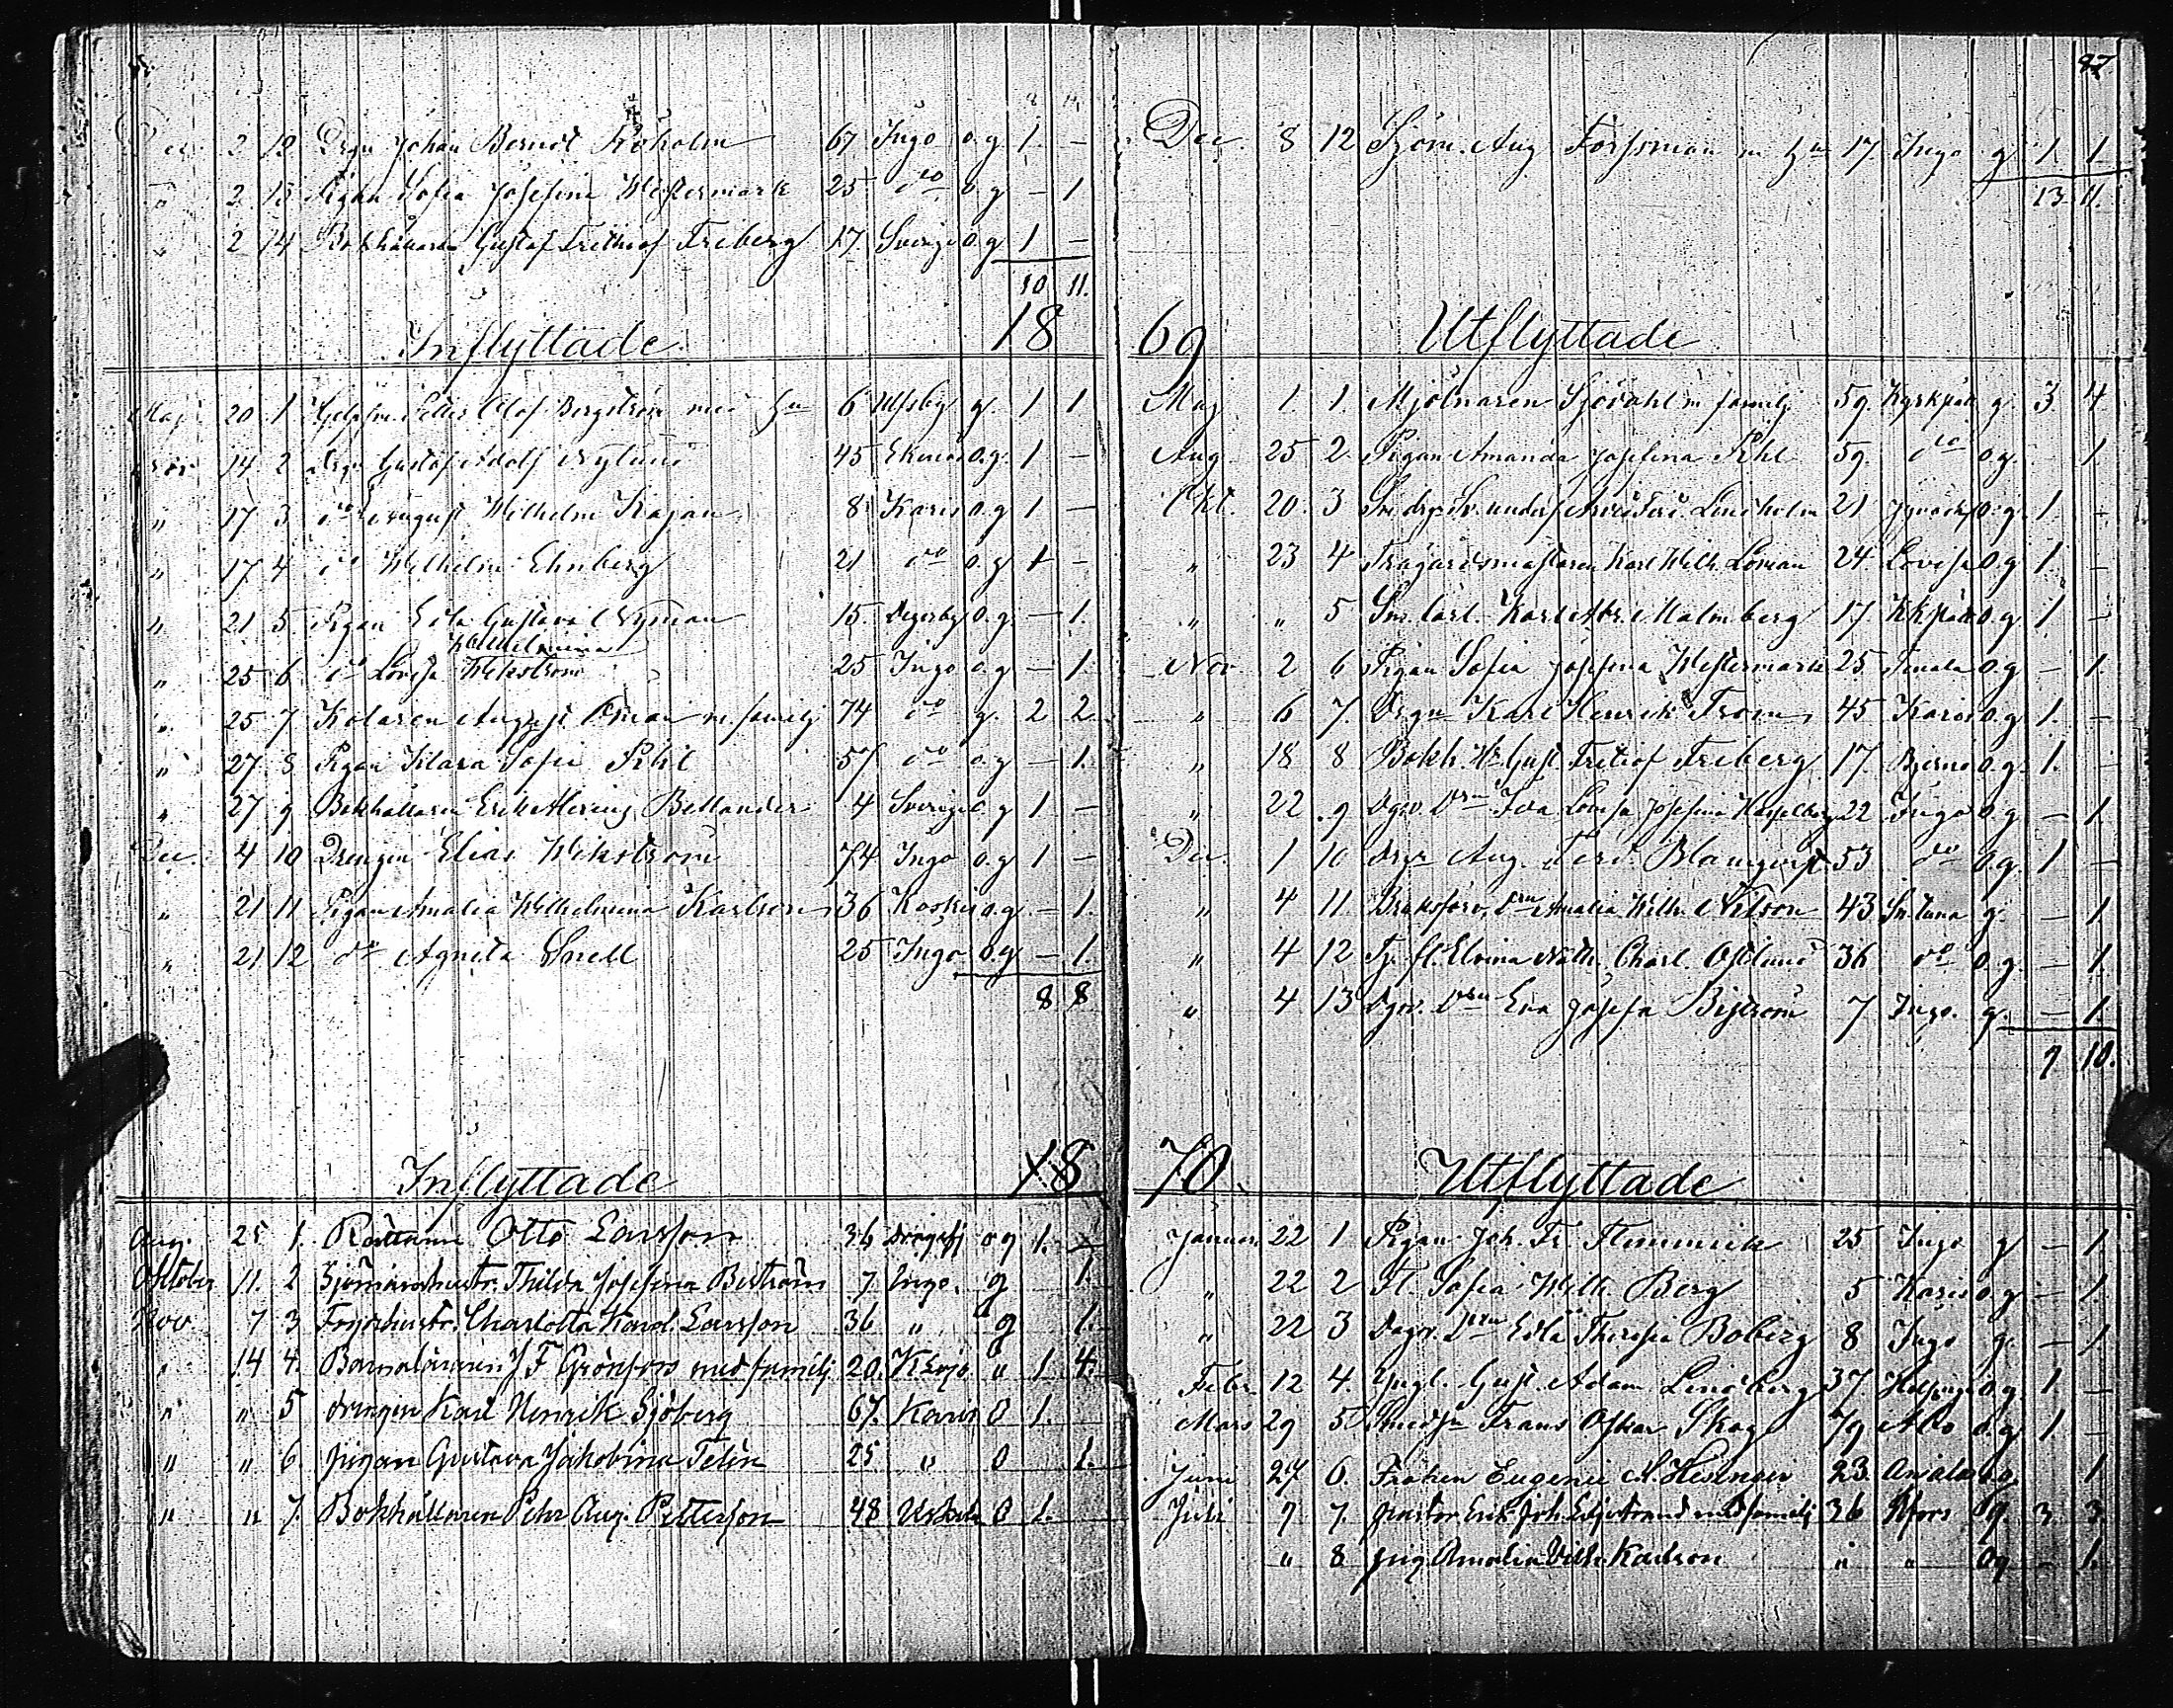 Dec. 2 12 Drgn Johan Bernot 67 Ingo o.g 1. –
" 2 13 Pigan Sofia Josefina Westermark 25 do o.g – 1
" 2 14 Bokhållaren Gustaf Frithiof Friberg 17. Sverige o.g 1 –
10 11.
Inflyttade 18
Maj 20 1 Petter Olof Bergström med 6 g. 1 1
Nov 14 2 Drgn Gustaf Adolf Nylund 45 Ekenäs o.g. 1 –
" 17 3 do August Wilhelm Kajan 8 Karis o.g 1 –
" 17 4 do Wilhelm Ehnberg 21 do o.g 1 –
" 21 5. Pigan Eva Gustava Nyman 15. Degerby o.g. – 1.
Wilhelmina
" 25 6 do Lovisa Wikström 25 Ingo o.g – 1.
" 25 7 Kolaren August Öman m. familj 74 do g. 2 2
" 27 8 Pigan Klara Sofia Pihl 57 do o.g – 1.
" 27 9 Bokhållaren Erik Bellander 4 Sverige o.g 1 –
Dec. 4 10 Drengen Elias Wikström 74 Ingo o.g 1 –
" 21 11 Pigan Amalia Wilhelmina Karlson 36 Koskis o.g. – 1.
" 21 12 do Agneta Snell 25 Ingo o.g – 1.
8 8
Inflyttade 18
Aug. 25 1. Otto Larsson 36 og 1.
Oktober 11. 2 Sjömanshustr. Thilda Josefina Biström 7 Ingo. g 1.
Nov 7 3 Charlotta Karol. Larsson 36 " g 1.
" 14 4. Barnaläraren J F Grönfors med familj 20. " 1 4.
" " 5 drengen Karl Henrik Sjöberg 67. Karis O 1.
" " 6. pigan Gustava Jakobina Telin 25 " O 1.
" " 7. Bokhållaren Pehr Aug. Petterson 48 O 1.
87
Dec. 8 12 Sjöm. Aug Forssman m 17. Ingo g 1. 1
13 11.
69 Utflyttade
Maj 1. 1. Mjölnaren Sjövahl m familj 59. Kyrkslätt g. 3 4
Aug 25 2. Pigan Amanda Josefina Pihl 59. do o.g. 1.
Okt. 20. 3 Lindholm 21 o.g. 1. –
" 23 4 Trägårdsmästaren Karl Wilh. Loman 24. Lovisa o.g 1. –
" " 5 Karl Abr. Malmberg 17. o.g 1 –
Nov 2 6 Pigan Sofia Josefina Westermark 25 Tenala o.g – 1.
" 6 7. Drgn Karl Henrik From 45 Karis o.g 1. –
" 18 8 Bokh. Hr Gust. Fritiof Friberg 17. Bjerno o.g. 1. –
" 22 9 Ida Lovisa Josefina 22 Ingo o.g – 1.
Dec. 1 10 Drgn Aug. Ferd. Blomqvist 53 do o.g. 1 –
" 4 11. Amalia Wilh. Nilson 43 g. – 1
" 4 12 Elvina Nath. Charl. Östlund 36 do o.g. – 1.
" 4 13 Eva Josefa Biström 7 Ingo. g. – 1.
9 10.
70. Utflyttade
Januari 22 1 Pigan Joh. Fr. Flemmick 25 Ingo g – 1.
" 22 2 Fl. Sofia Wilh. Berg 5 Karis o.g – 1.
" 22 3 Edla Theresia Boberg 8 Ingo g. – 1.
Febr 12 4. Gust. Adam Lindberg 37. o.g. 1 –
Mars 29 5 Frans Oskar Skog 79 Åbo o.g 1 –
Juni 27 6. Fröken Eugenie Hisinger 23. o.g. 1
Juli 7 7. pastor Erik Joh. med familj 36 Hfors g. 3 3.
" 8 pig. Amalia Vilh. Karlson " " og – 1.